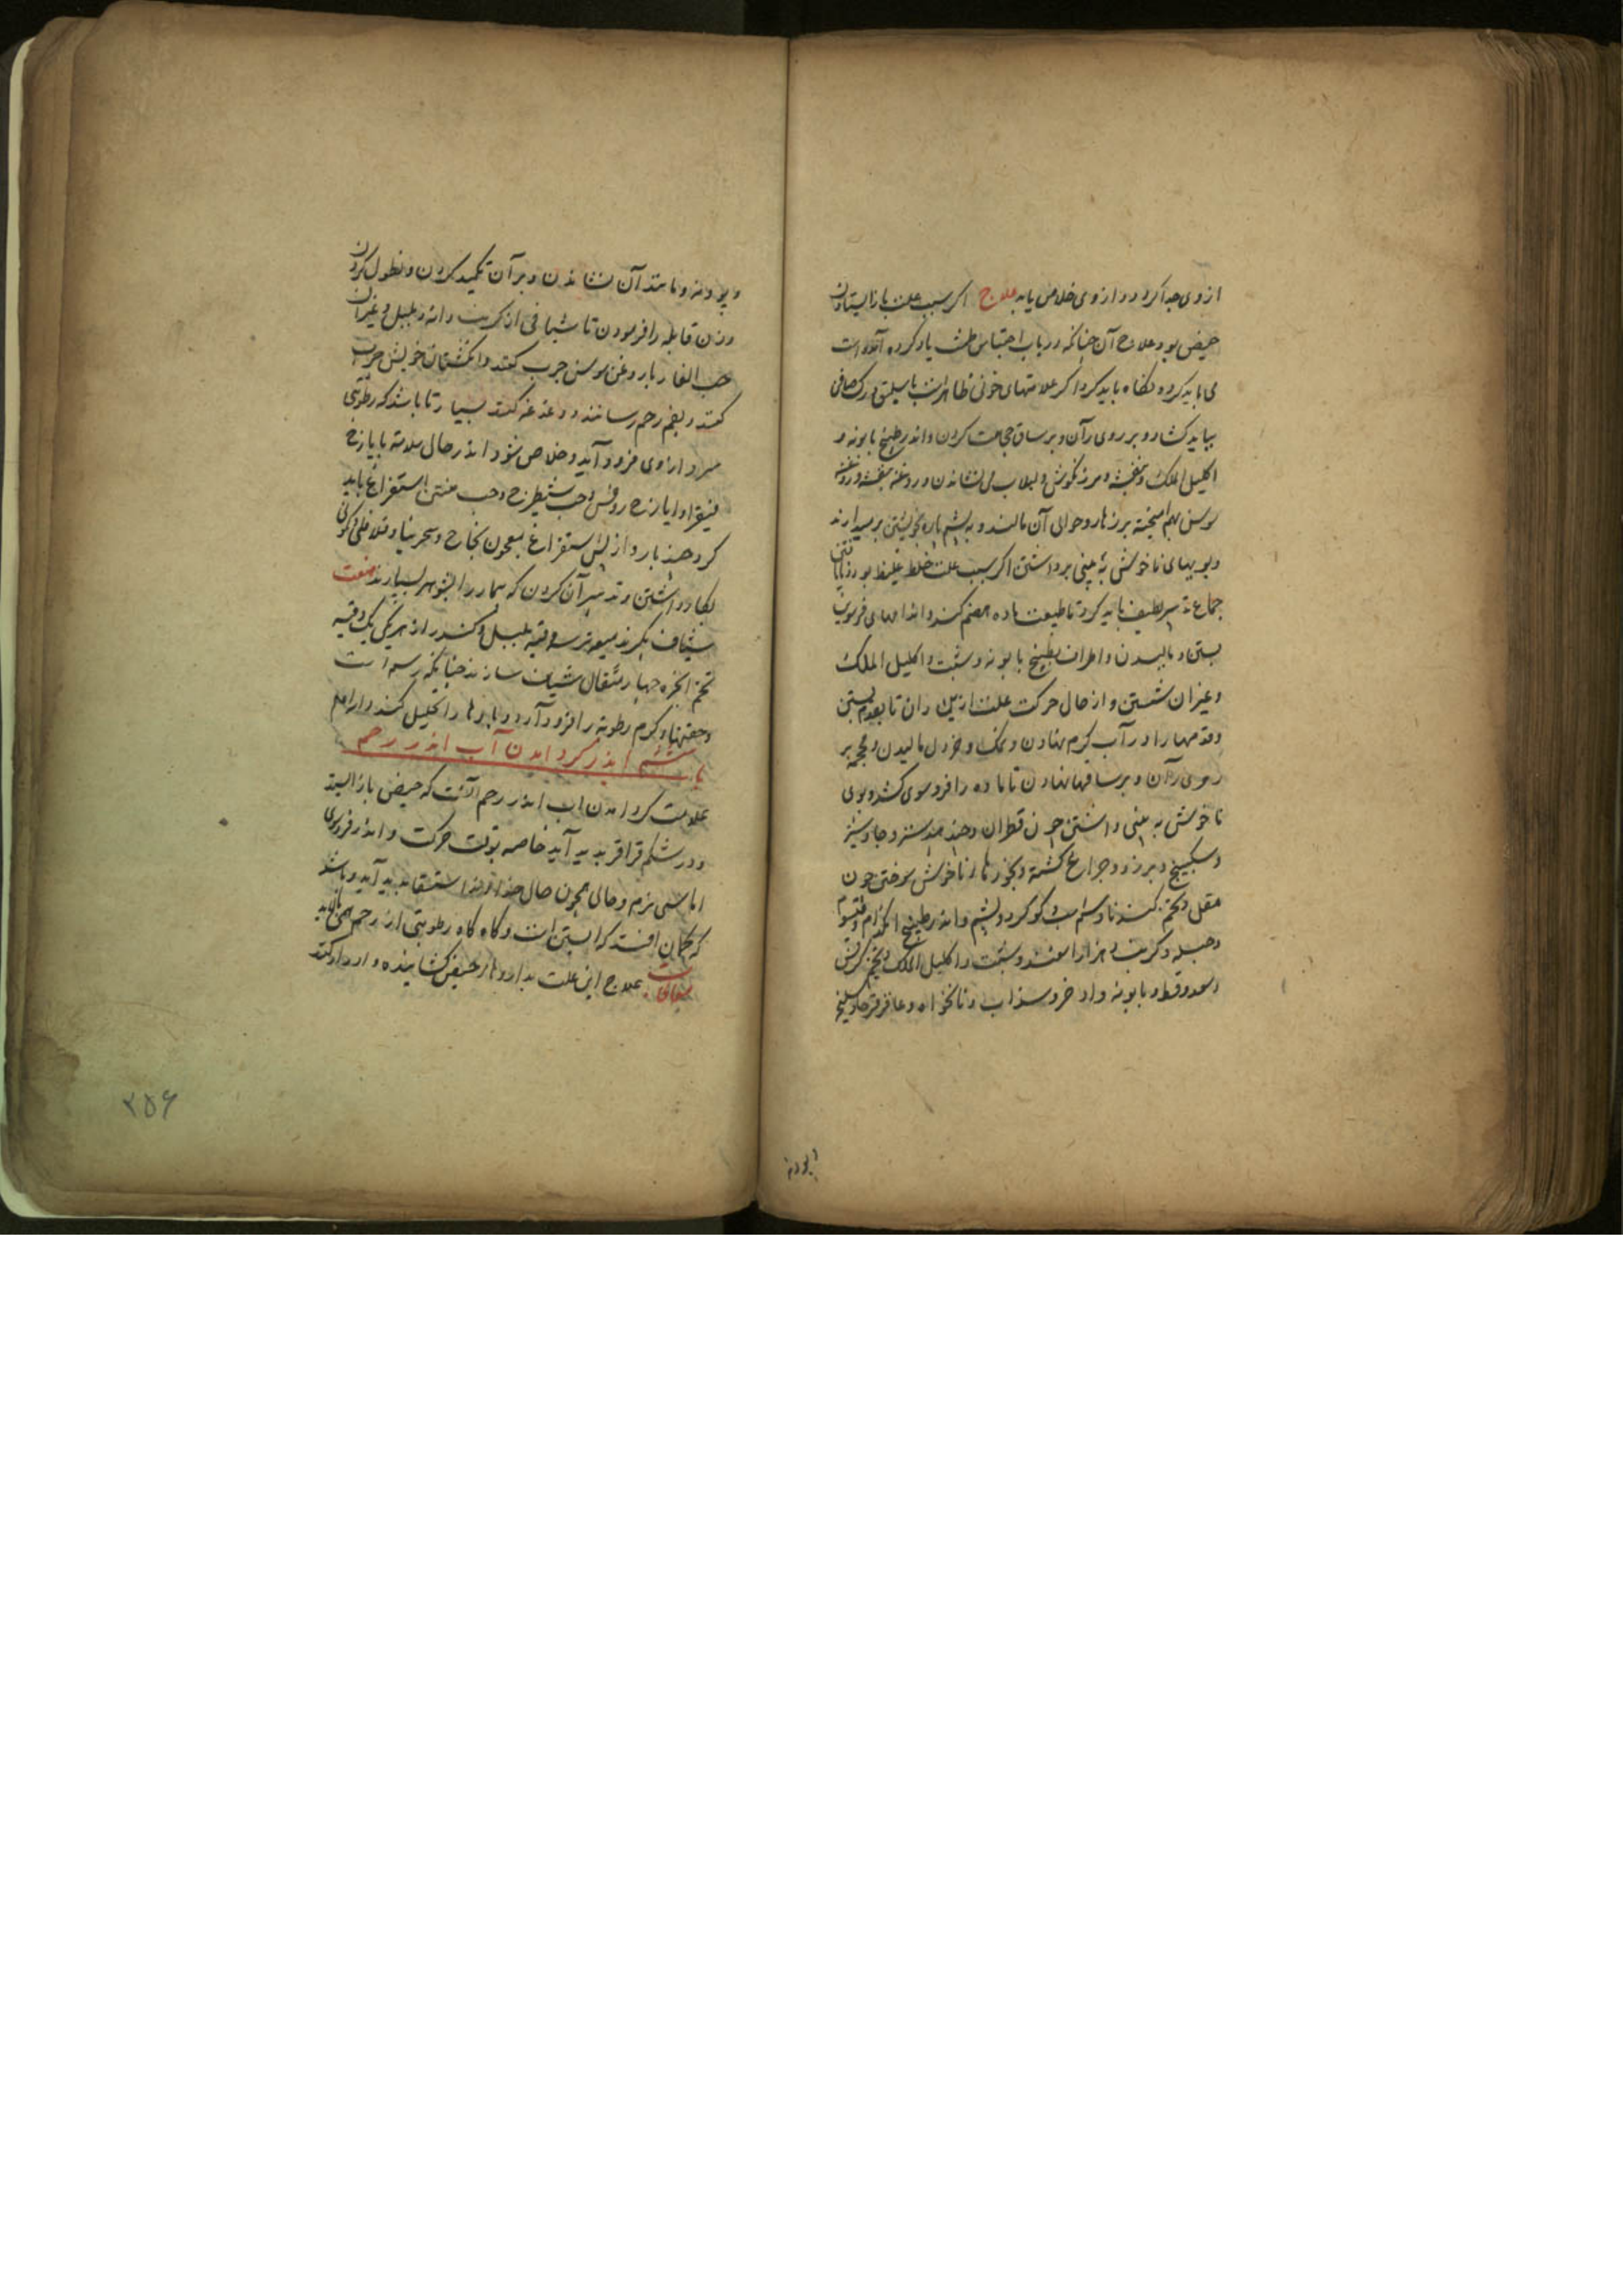 از وی جدا کردد و از وی خلاص یابد علاج اکر سبب علت بازایستادن
حیض بود علاج آن چنانکه در باب احتباس طمث یاد کرده آمده است
می باید کرد و نکاه باید کرد اکر علامتهای خونی ظاهر است باسلیق و رک صافن
بباید کشاد و بر روی ران و بر ساق حجامت کردن و اندر طبیخ بابونه و
اکلیل الملک و بنفشه و مرزنکوش و لبلاب می نشاندن و روغن بنفشه و روغن
سوسن بهم امیخته بر زهار و حوالی آن مالند و به پشم پاره بخویشتن برمیدارند
و بویهای ناخوش به بینی برداشتن اکر سبب علت خلط غلیظ بود
جماع تدبیر لطیف باید کرد تا طبیعت ماده هضم کند و اندامهای فروسوین
بستن و مالیدن و اطراف بطبیخ بابونه و شبت و اکلیل الملک
و غیر ان شستن و از حال حرکت علت از بن ران تا بقدم بستن
و قدمها را در آب کرم نهادن و نمک و خردل مالیدن و محجمه بر
روی ران و بر ساقها نهادن تا ماده را فروسوی کشد و بوی
ناخوش به بینی داشتن چون قطران و جندبیدستر و جاوشیر
و سکبینج و بیرزد و چراغ کشته و بخورهاء ناخوش سوختن چون
مقل و تخم کندنا و سم بز و کوکرد و پشم و اندر طبیخ
و حلبه و کرنب و هزار اسفند و شبت و اکلیل الملک و تخم کرفس
و سعد و قسط و بابونه و اذخر و سذاب و نانخواه و عاقرقرحا و سلیخه
و پودنه
و پودنه و مانند آن نشاندن و بر آن تکمید کردن و نطول کردن
و زن قابله را فرمودن تا شیافی از کرنب دانه و بلبل و غیر ان
حب الغار بار و غن سوسن چرب کنند و انکشتان خویش چرب
کنند و بفم رحم رسانند و دغدغه کنند بسیار تا باشد که رطوبتی
سرد از وی فرود آید و خلاص شود و اندر حال سلامة بایارج
فیقرا و ایارج روفس و حب شیطرج و حب منتن استفراغ باید
کرد چند بار و از پس استفراغ معجون نجاح و سجرینا و فلافلی و کمونی
بکار داشتن و تدبیر آن کردن که بیمار را بشوهر بسپارند صفت
شیاف بکیرند میعه تر سه وقیه بلبل و کندر از هر یکی یک وقیه
تخم انجره چهار مثقال شیاف سازند چنانکه رسم است
و حقنهاء کرم رطوبة را فرود آرد و بادها را تحلیل کند و ارام
باب ششم اندر کرد امدن آب اندر رحم
علامت کرد امدن اب اندر رحم آنست که حیض بازایستد
و در شکم قراقر بدید آید خاصه بوقت حرکت و اندر فروسوی
اماسی نرم و حالی همچون حال خداوند استسقا بدید آید و باشد
که کمان افتد که ابستن است و کاه کاه رطوبتی از رحم همی پالاید
معالجات علاج این علت بداروهاء حیض کشاینده و ادرار کنند
۲۵۶